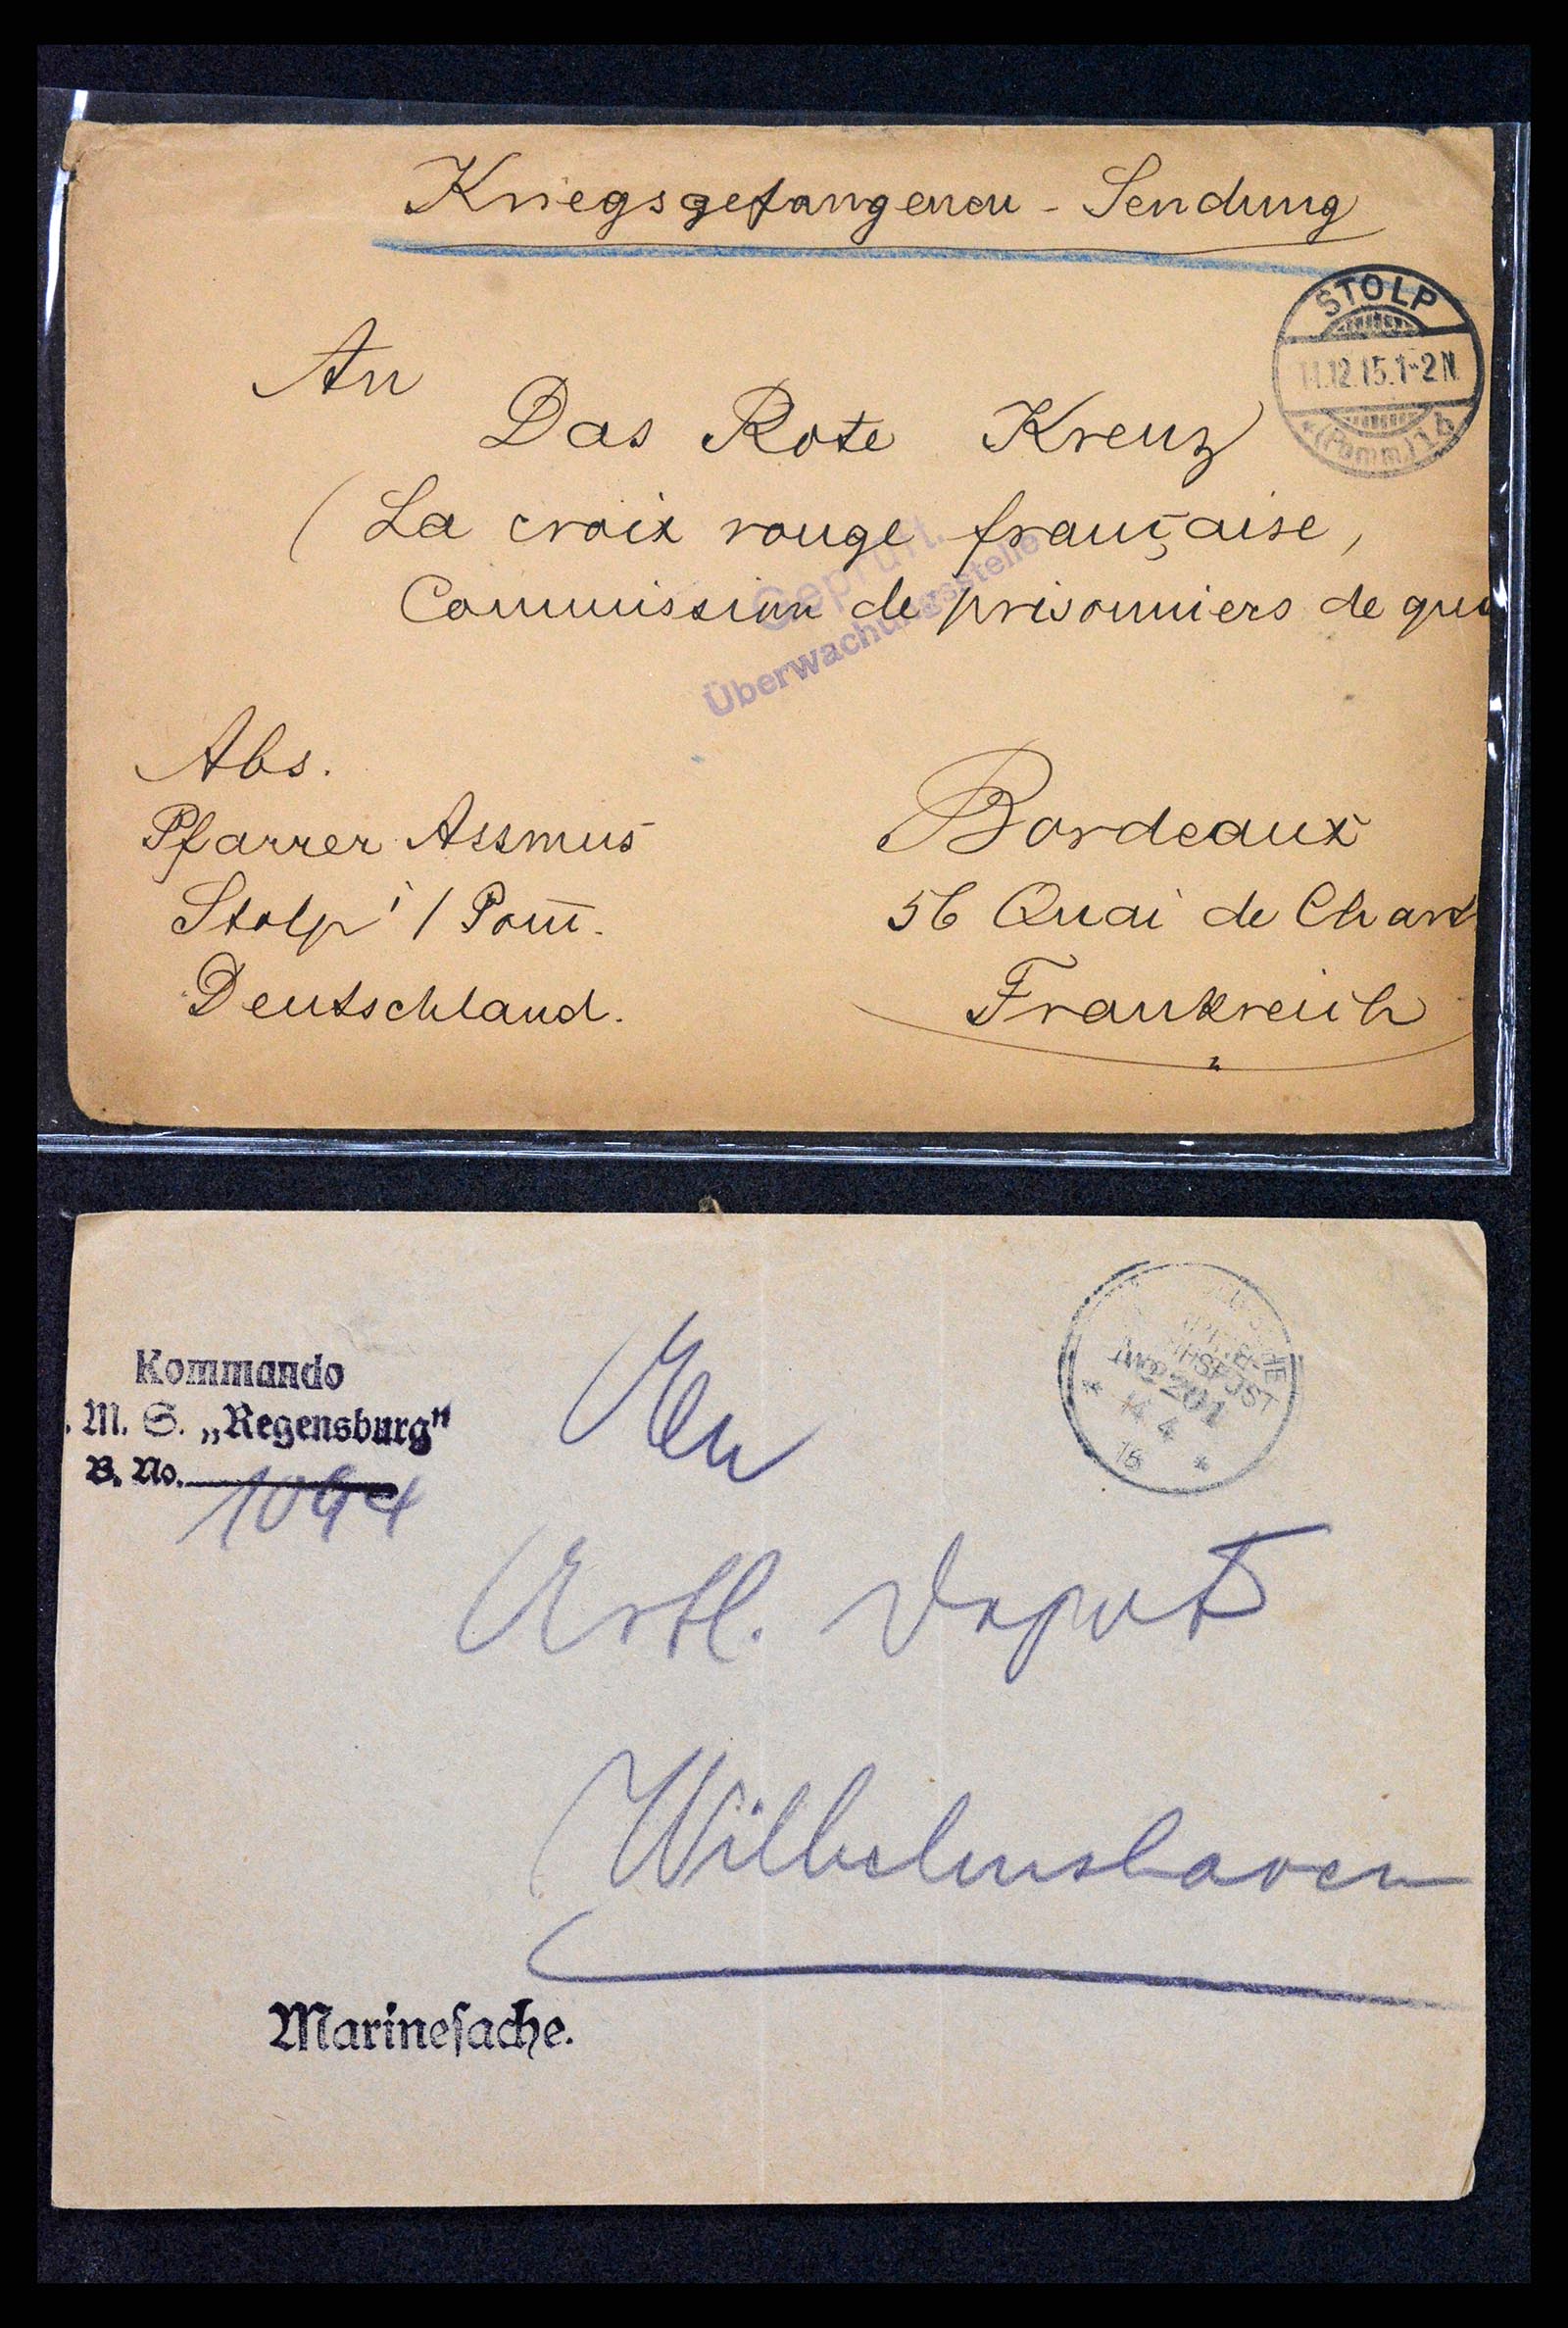 Kriegsgefangenen - Sendung
STOLP
11.12.15.1-2N.
*(Pomm.)1b
An
Das Rote Kreuz
(La croix rouge française,
Commission de prisonniers de gue
Geprüft.
Überwachungsstelle
Abs.
Pfarrer Assmus
Stolp i/Pom̄.
Deutschland.
Bordeaux
56 Quai de Chart
Frankreich
Kommando
. M. S. „Regensburg"
B. No. 1044
No 201
14 4
16
An
Artl. Depot
Wilhelmshaven
Marineſache.